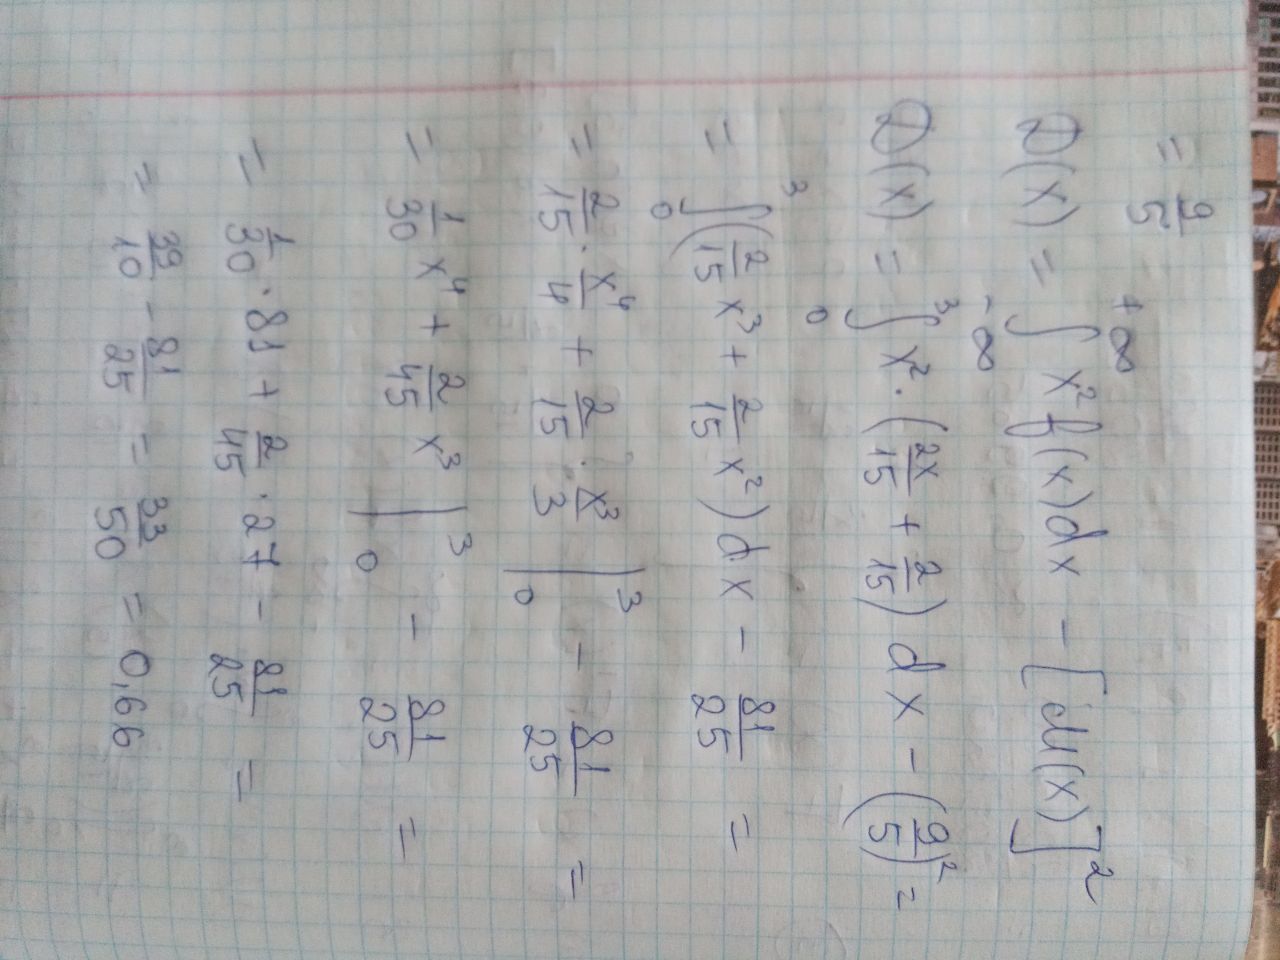 = 9/5
D(x) = ∫_{-∞}^{+∞} x² f(x)dx - [M(x)]²
D(x) = ∫_0^3 x² · (2x/15 + 2/15) dx - (9/5)² =
= ∫_0^3 (2/15 x³ + 2/15 x²) dx - 81/25 =
= 2/15 · x⁴/4 + 2/15 · x³/3 |_0^3 - 81/25 =
= 1/30 x⁴ + 2/45 x³ |_0^3 - 81/25 =
= 1/30 · 81 + 2/45 · 27 - 81/25 =
= 39/10 - 81/25 = 33/50 = 0,66